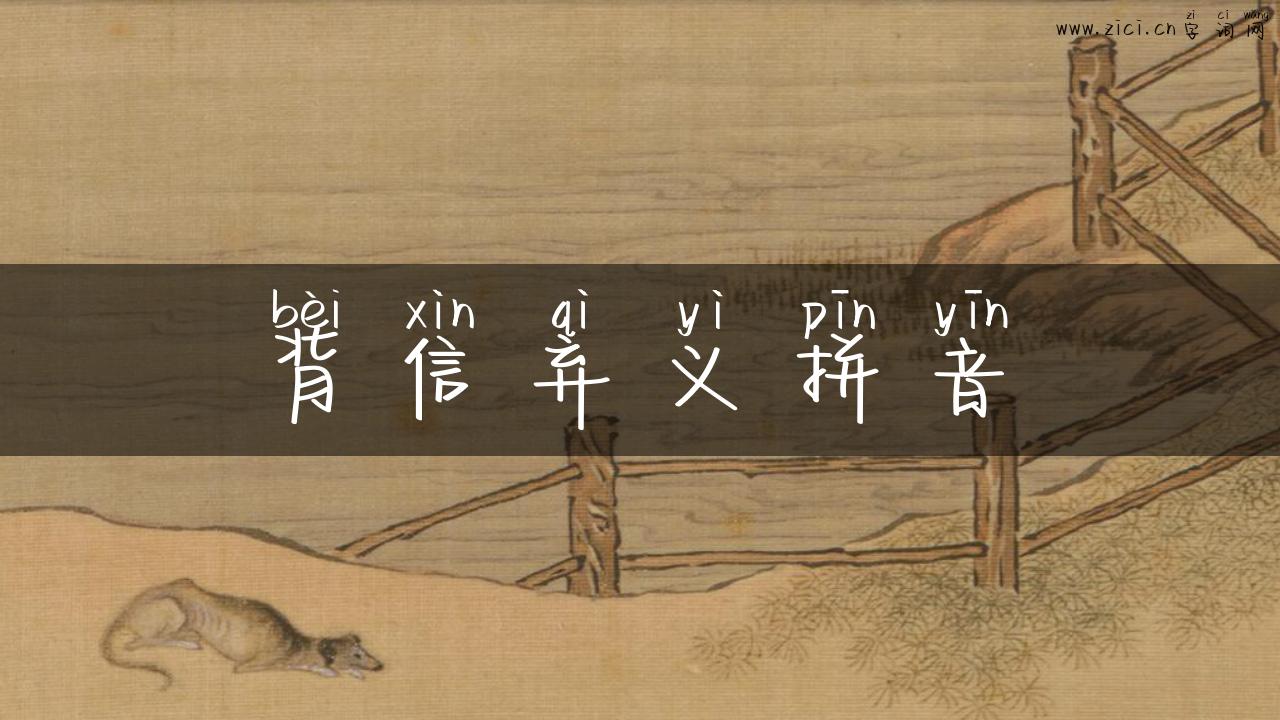 zi ci wang
www.zici.cn字词网
bèi xìn qì yì pīn yīn
背信弃义拼音